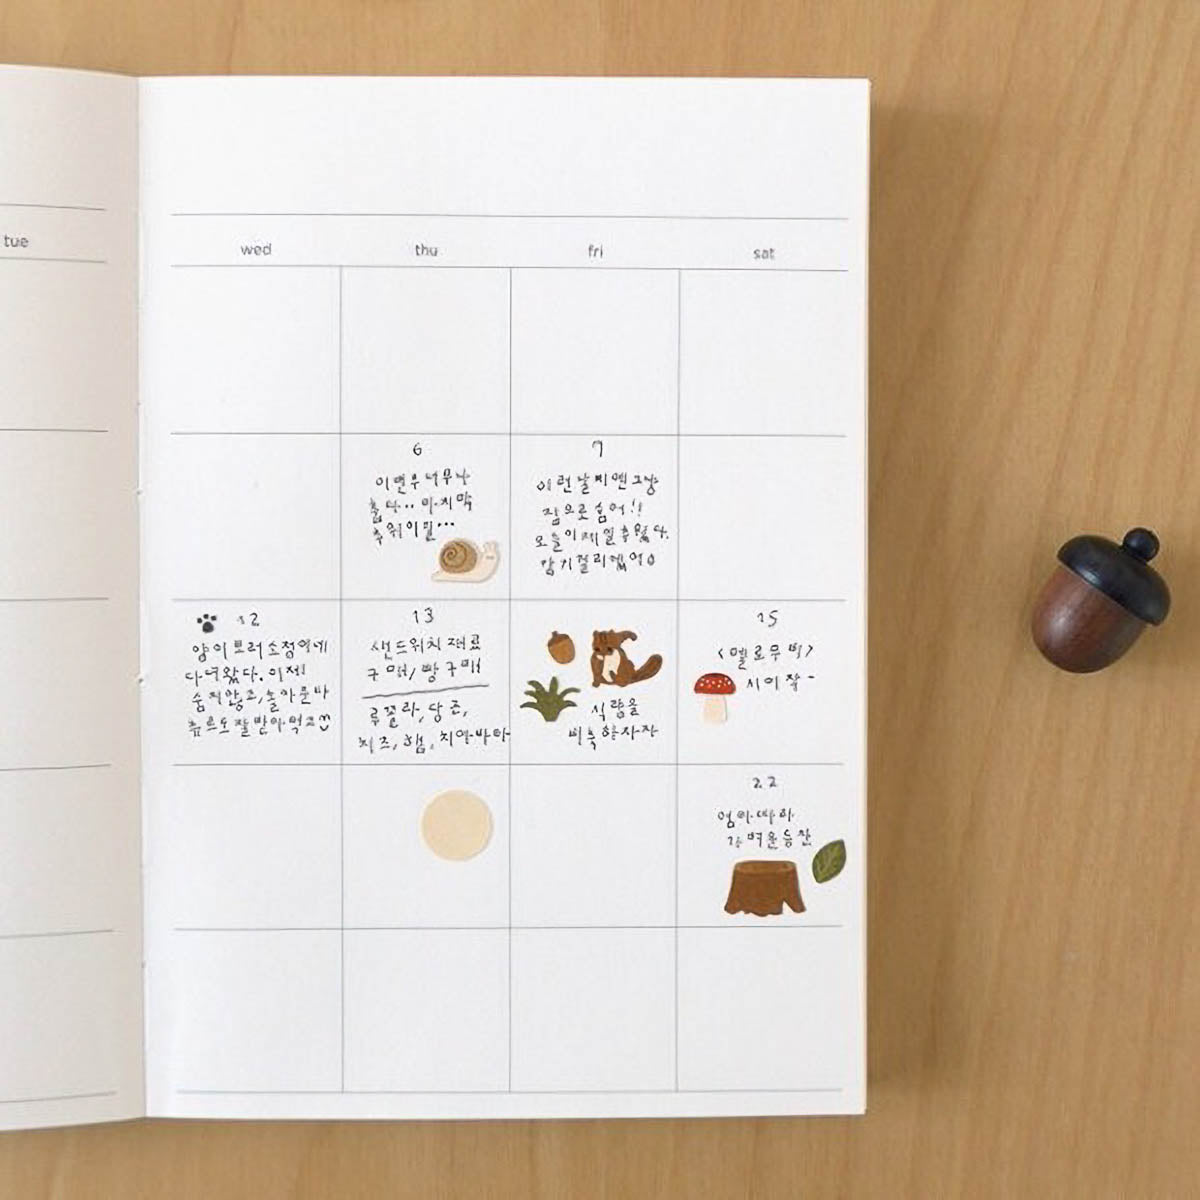 tue
wed
thu
fri
sat
6
너무나
춥다.. 마지막
추위이길...
7
이런 날씨엔 그냥
집으로 숨어!!
오늘이 제일 추웠다.
감기 걸리겠어
12
양이 보러 소정이네
다녀왔다. 이제
숨지않고, 놀아준다
츄르도 잘 받아먹고
13
샌드위치 재료
구매, 빵 구매!
루꼴라, 당근,
치즈, 햄, 치아바타
식량을
비축하자
15
<멜로무비>
시이작-
22
엄마